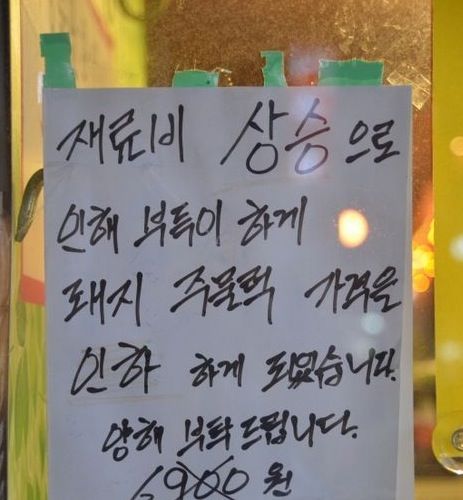 재류비 상승으로
인해 부득이 하게
돼지 주물럭 가격을
인하 하게 되었습니다.
양해 부탁드립니다.
6900원